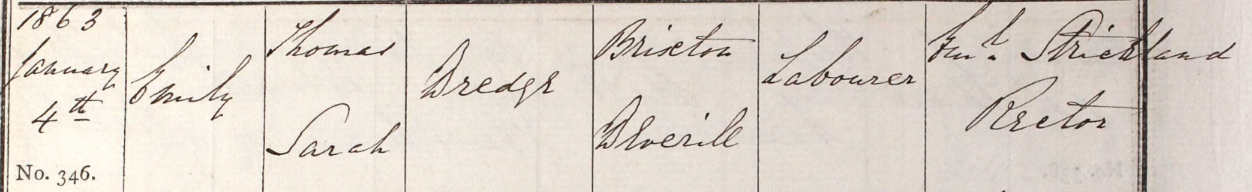 1863
January
4th
No. 346.
Emily
Thomas
Sarah
Bredge
Brixton
Deverill
Labourer
Strickland
Rector